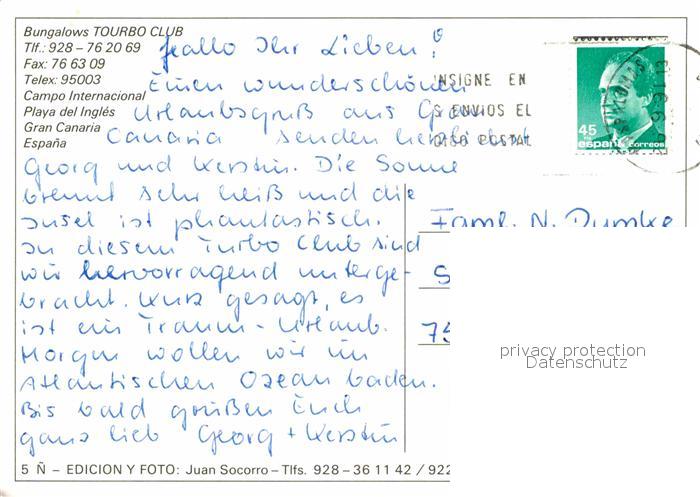 Bungalows TOURBO CLUB
Tlf.: 928 – 76 20 69
Fax: 76 63 09
Telex: 95003
Campo Internacional
Playa del Inglés
Gran Canaria
España
Hallo Ihr Lieben!
Einen wunderschönen
Urlaubsgruß aus Gran
Canaria senden herzlichst
Georg und Kerstin. Die Sonne
brennt sehr heiß und die
Insel ist phantastisch.
In diesem Turbo Club sind
wir hervorragend unterge-
bracht. Kurz gesagt, es
ist ein Traum-Urlaub.
Morgen wollen wir im
Atlantischen Ozean baden.
Bis bald grüßen Euch
ganz lieb Georg + Kerstin
INSIGNE EN
S ENVIOS EL
DIGO POSTAL
45
PTA
españa correos
Faml. N. Dumke
S
75
privacy protection
Datenschutz
5 Ñ – EDICION Y FOTO: Juan Socorro – Tlfs. 928 – 36 11 42 / 922